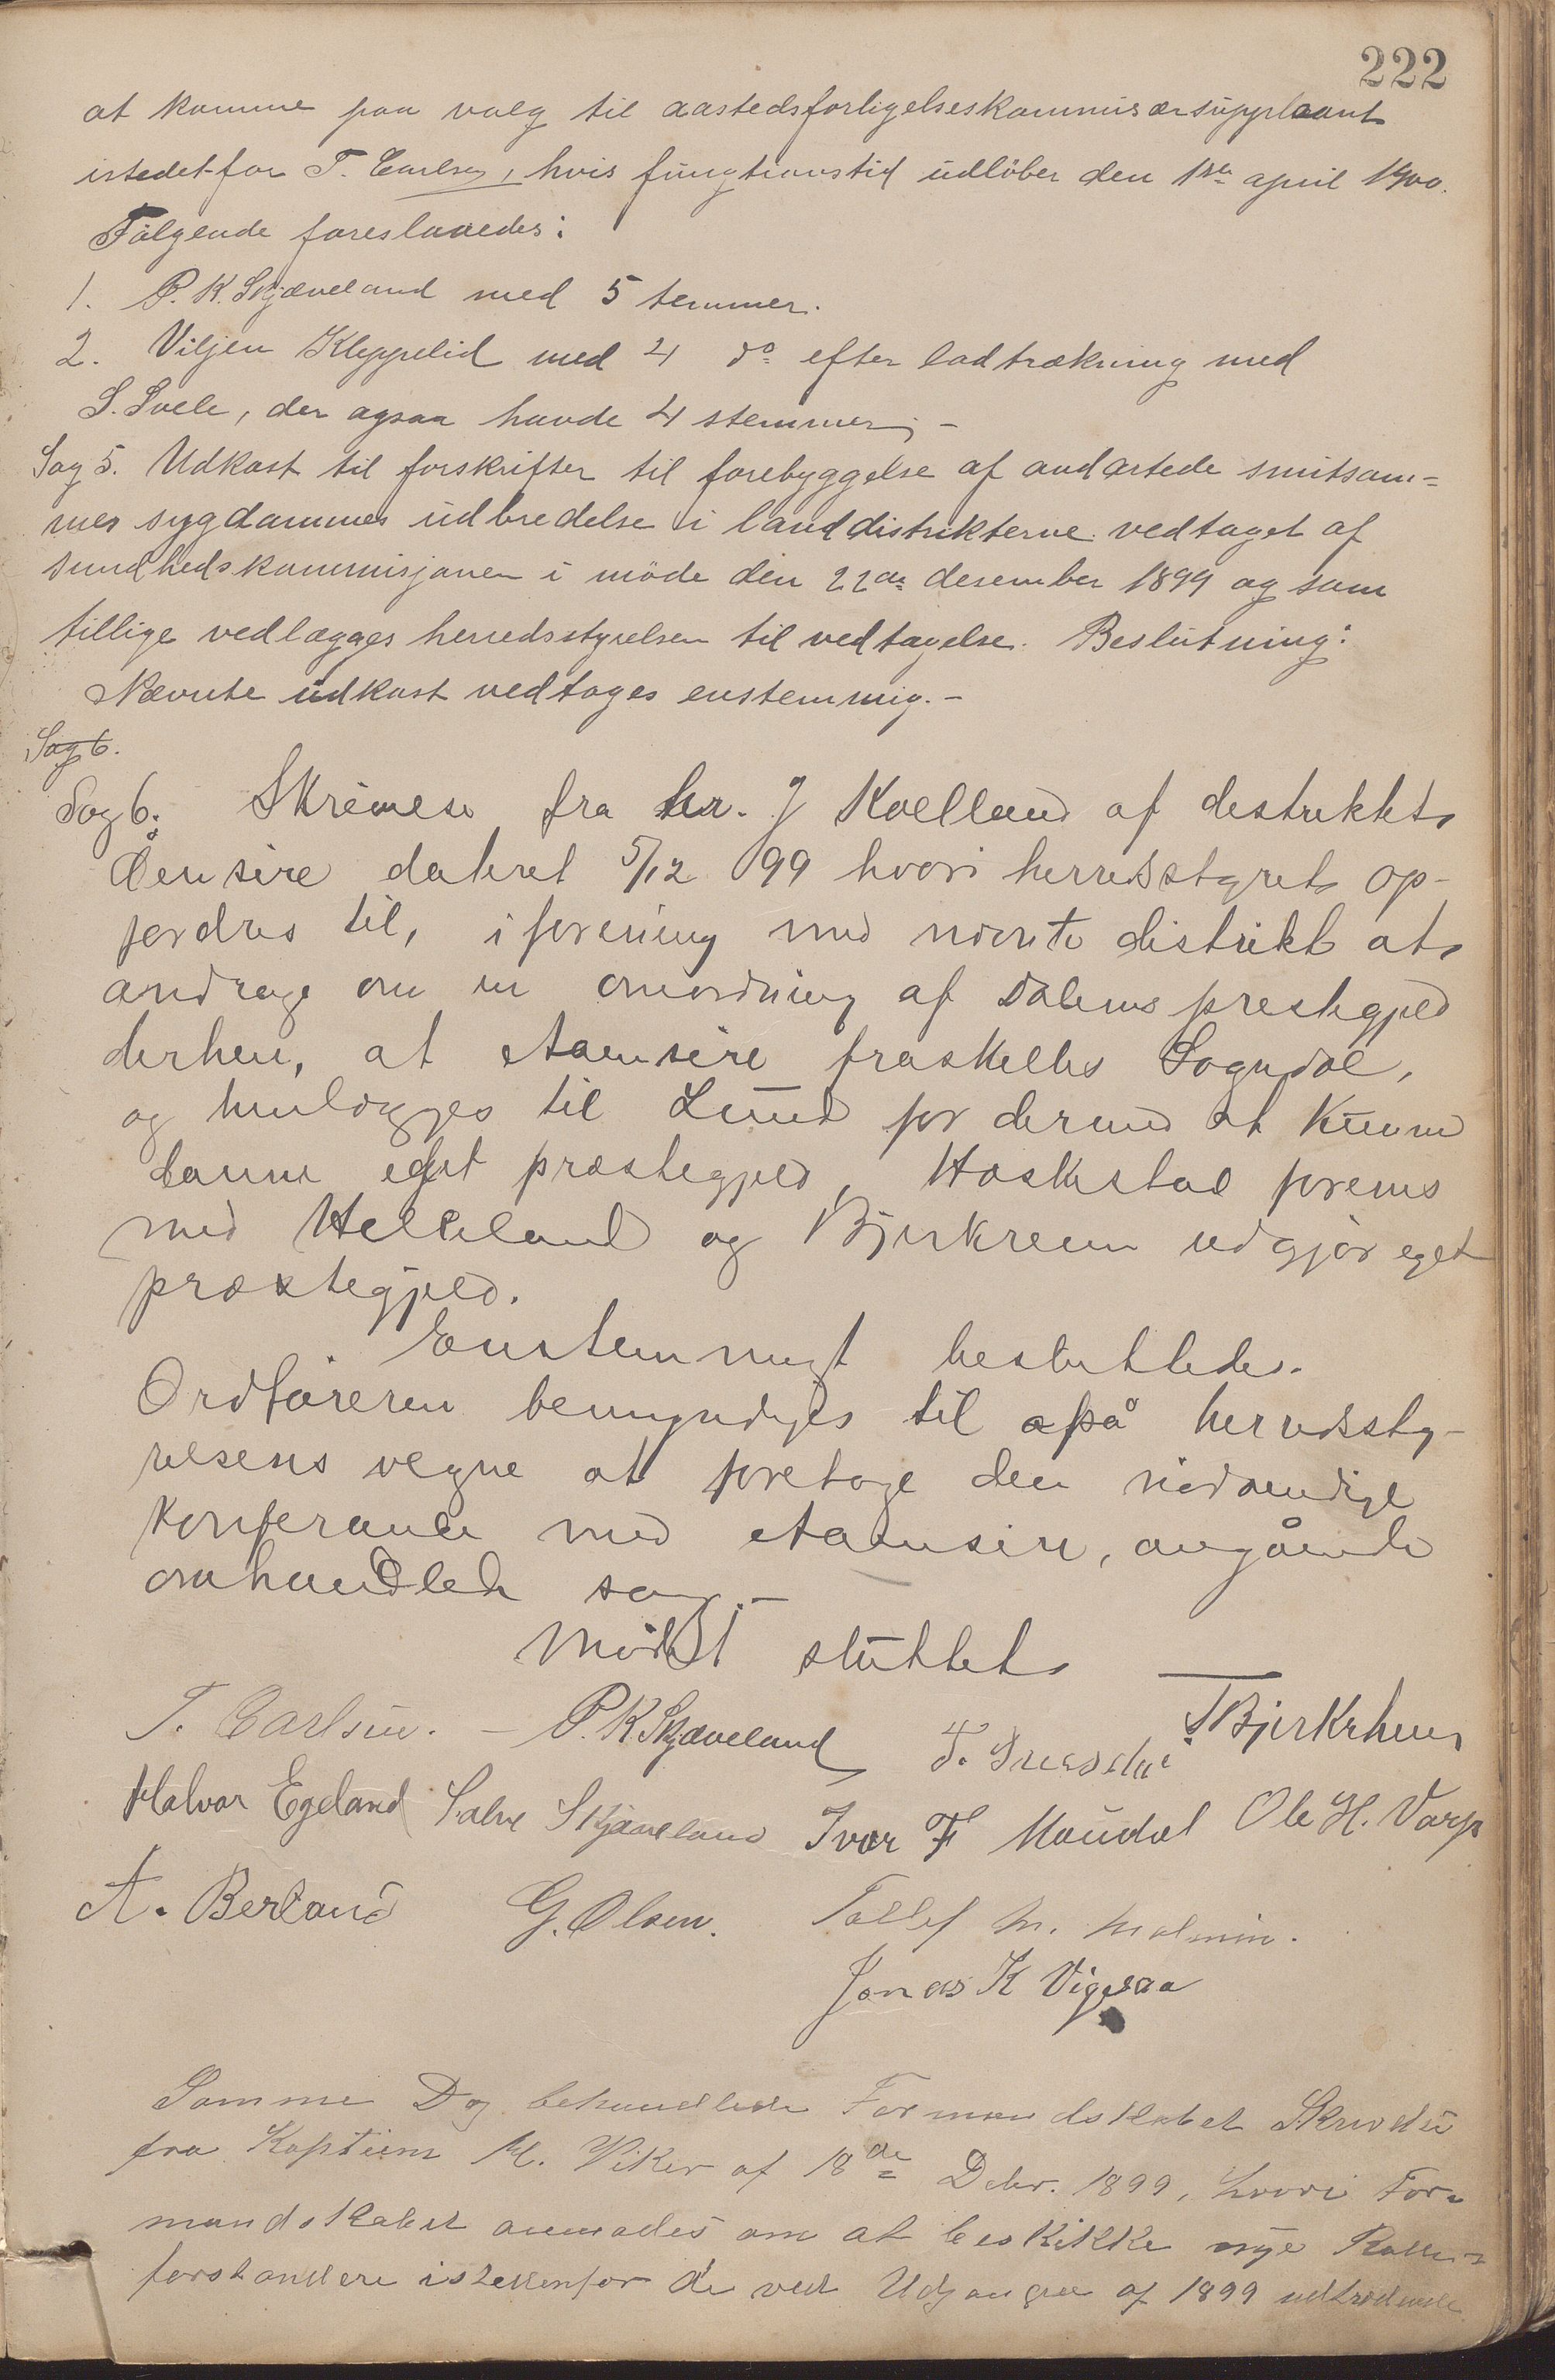 222
at komme paa valg til aastedsforligelseskommisærsuppleant
istedetfor T. Carlsen, hvis fungtionstid udlöber den 1ste april 1900.
Fölgende foresloaedes:
1. P. K. Skjæveland med 5 temmer.
2. Viljen Kleppelid med 4 do efter lodtrækning med
S. Svele, der ogsaa havde 4 stemmer, -
Sag 5. Udkast til forskrifter til forebyggelse af ondartede smitsom=
mes sygdommes udbredelse i landdistrikterne vedtaget af
sundhedskommisjonen i möde den 22de desember 1899 og som
tillige vedlægges herredsstyrelsen til vedtagelse. Beslutning:
Nævnte udkast vedtoges enstemmig. -
Sag 6.
Sag 6. Skrivelse fra hr. J Kvelland af destriktet
Åensire dateret 5/12 99 hvori herredsstyret op-
fordres til, i forening med nævnte distrikt at
andrage om en omordning af Dalens prestegjeld
derhen, at Aaensire fraskilles Sogndal,
og henlægges til Lund for dermed at kunne
danne eget præstegjeld, Heskestad forenes
med Helleland og Bjerkreim udgjör eget
præstegjeld.
Enstemmigt besluttedes.
Ordföreren bemyndiges til på herredssty-
relsens vegne at foretage den nödvendige
konferance med Aaensire, angående
omhandlede sag. -
Mödet sluttet
T. Carlsen. - P. K. Skjæveland T. Bjerkrheim
Halvor Egeland Salve Skjæveland Ivar F Maudal Ole H. Varp
A. Berland G. Olsen. Tollef M. Malmin.
Jonas K Vigesaa
Samme Dag behandlede Formandskabet Skrivelse
fra Kaptein M. Viker af 18de Debr. 1899, hvori For=
mandskabet anmodes om at beskikke nye Rulle=
forstandere istedenfor de ved Udgangen af 1899 udtrædende